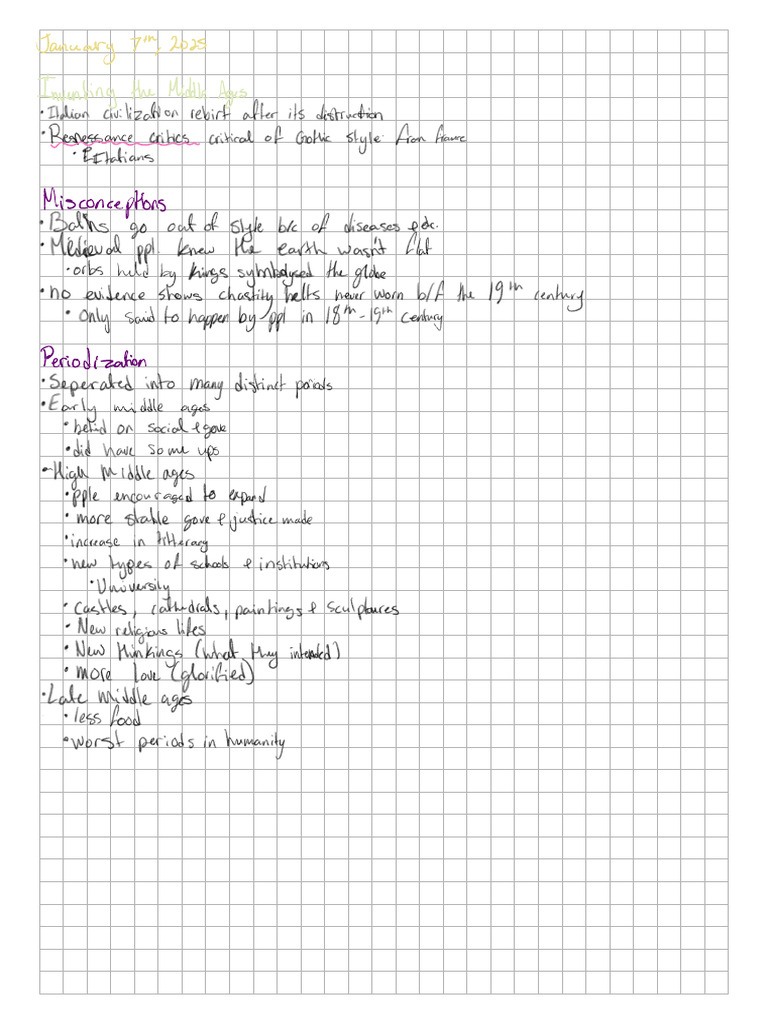 January 7th, 2025
Inventing the Middle Ages
• Italian civilization rebirt after its distruction
• Renessance critics critical of Gothic style from France
• Italians
Misconceptions
• Baths go out of style b/c of diseases & etc.
• Medieval ppl knew the earth wasn't flat
• orbs held by kings symbolysed the globe
• no evidence shows chastity belts never worn b/f the 19th century
• Only said to happen by ppl in 18th-19th century
Periodization
• Seperated into many distinct periods
• Early middle ages
• behid on social & gove
• did have some ups
• High Middle ages
• pple encouraged to expand
• more stable gove & justice made
• increase in litterary
• new types of schools & institutions
• University
• Castles, cathedrals, paintings & sculptures
• New religious lifes
• New thinkings (what they intended)
• more love (glorified)
• Late middle ages
• less food
• worst periods in humanity